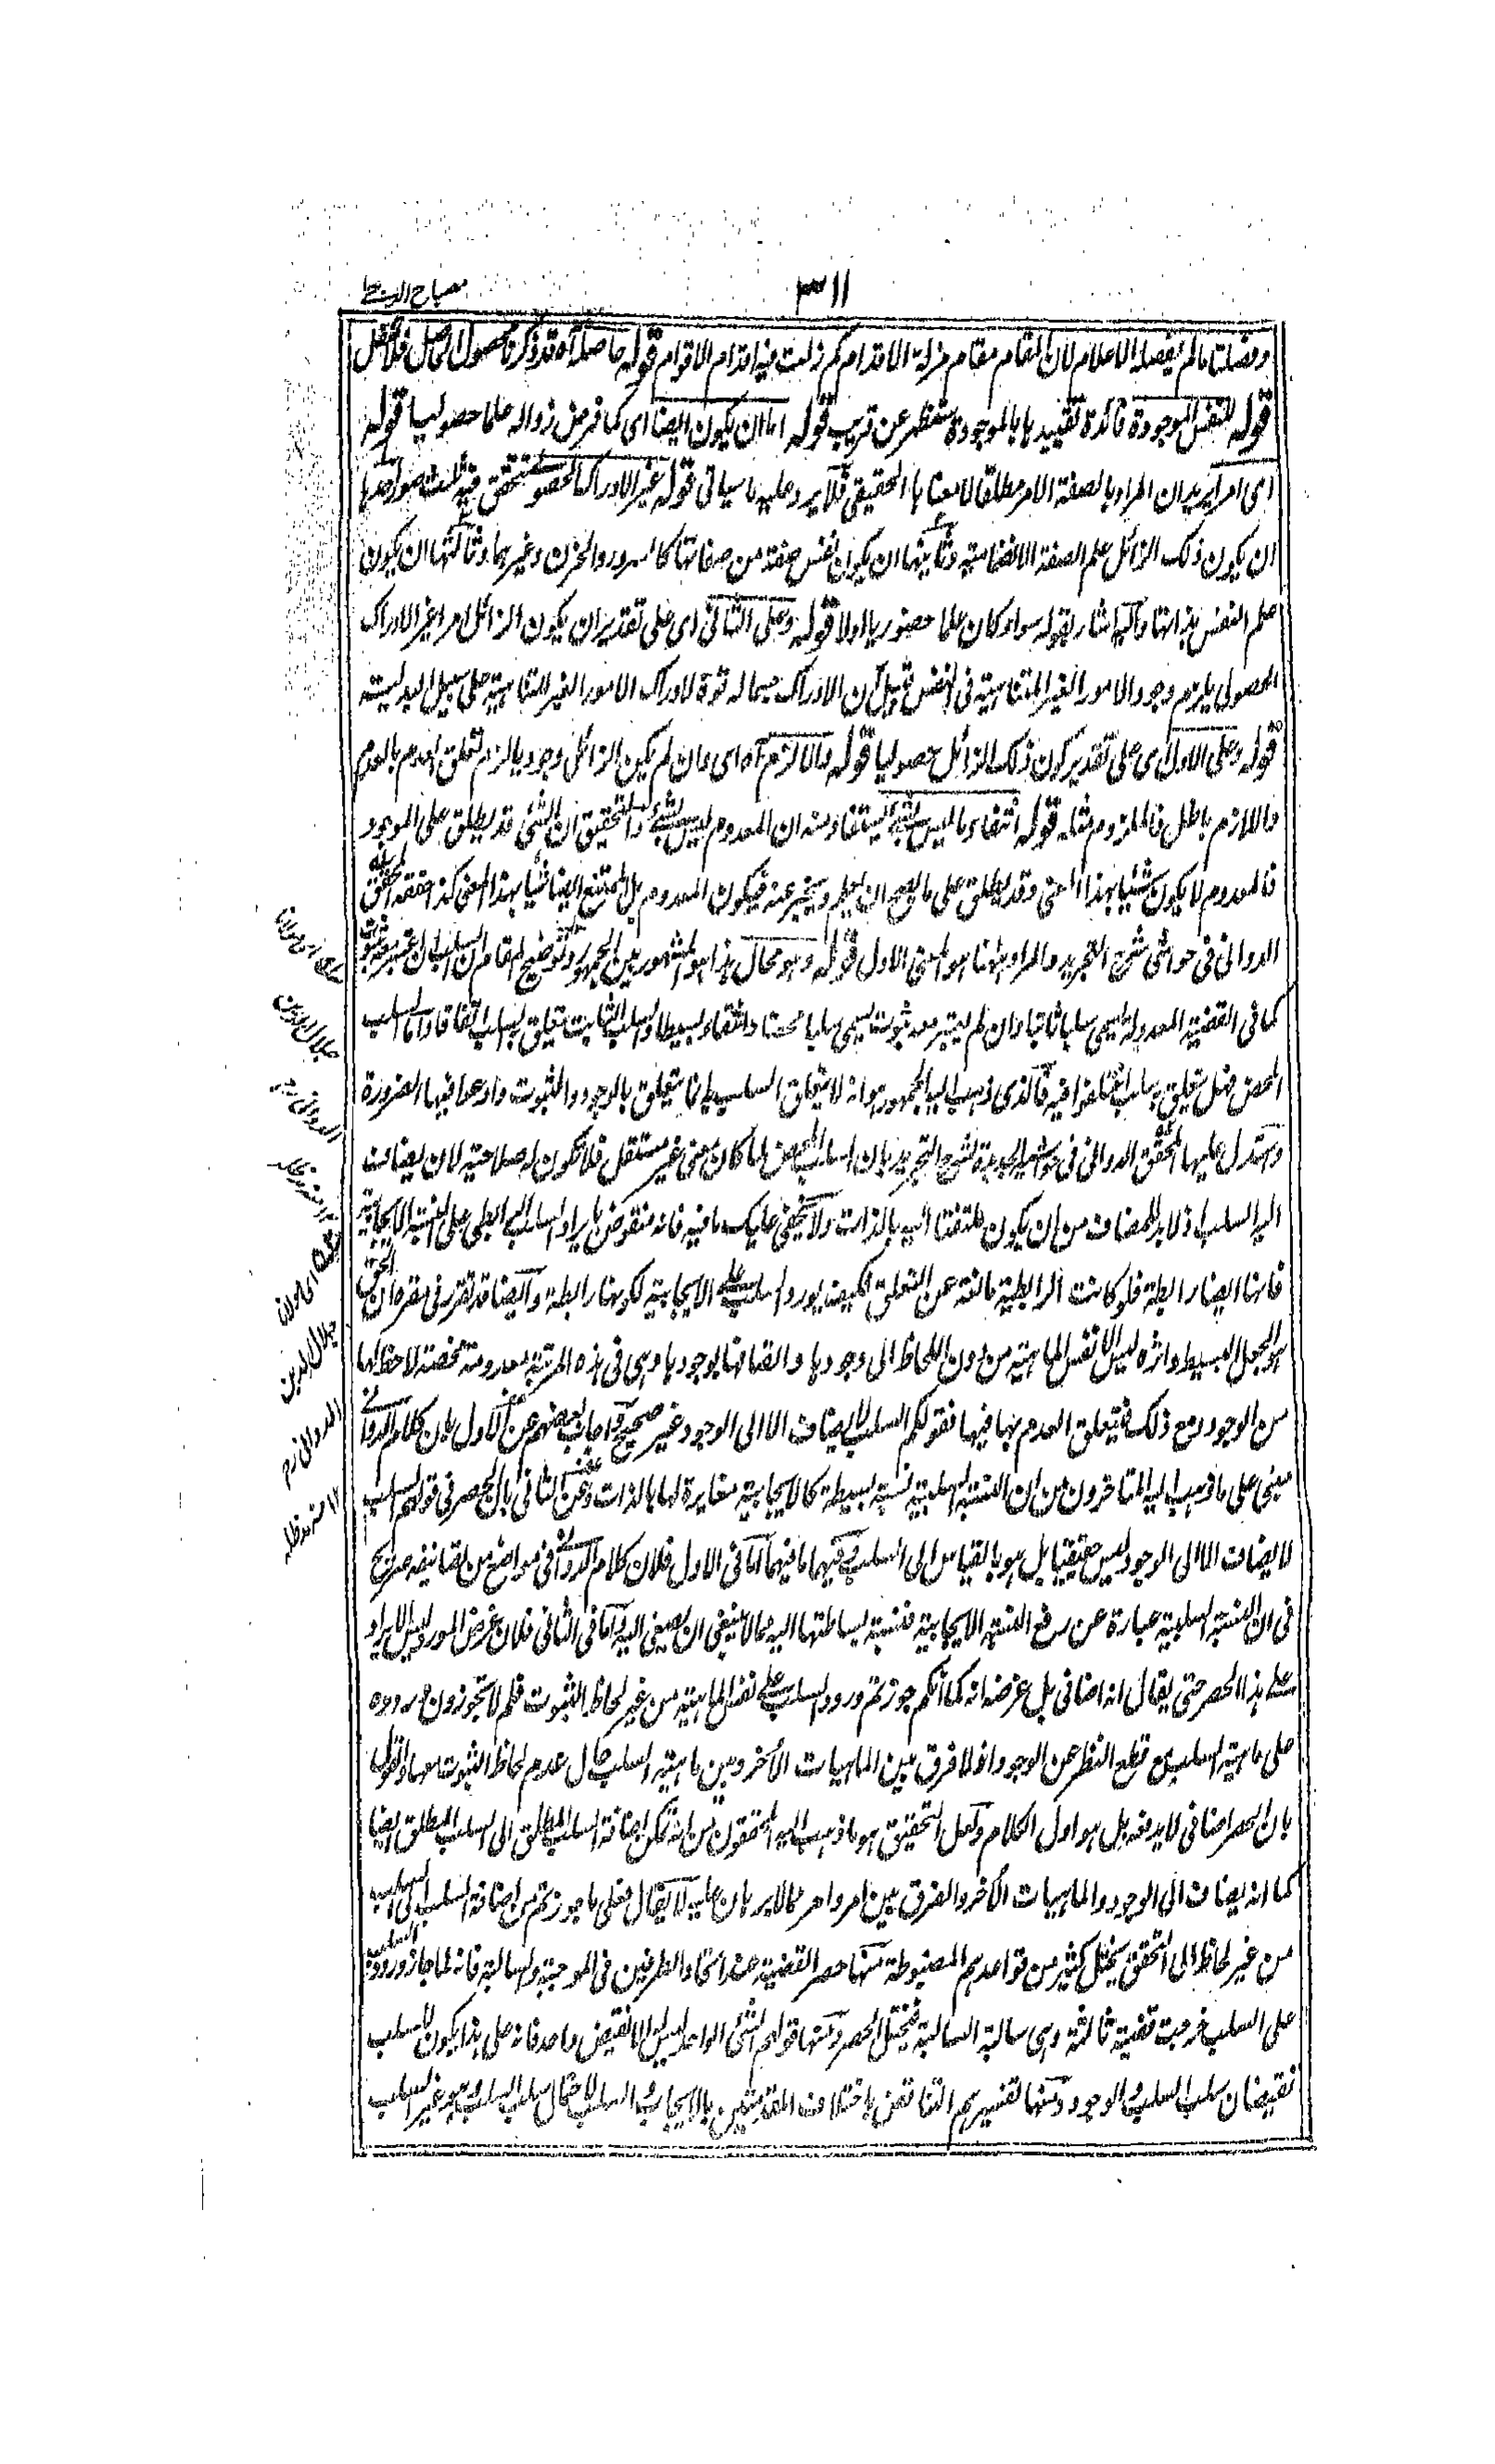 مصباح الدجى
٣١١
وفصلت ما لم يفصله الاعلام لان المقام مقام مزلة الاقدام كم زلت فيه اقدام الاقوام قوله حاصله آه قد ذكرنا محصول الحاصل فلا تغفل
قوله للنفس الموجودة فائدة تقييدها بالموجودة ستظهر عن قريب قوله اما ان يكون ايضا اى كما فرض زواله علما حصوليا قوله
اى امرا يريد ان المراد بالصفة الامر مطلقا لا معناها الحقيقي فلا يرد عليه ما سياتى قوله غير الادراك الحصولى تتحقق فيه ثلث صور احدها
ان يكون ذلك الزائل علم الصفة الانضمامية وثانيتها ان يكون نفس صفة من صفاتها كالسرور والحزن وغيرهما وثالثتها ان يكون
علم النفس بذاتها واليه اشار بقوله سواء كان علما حضوريا اولا قوله وعلى الثانى اى على تقدير ان يكون الزائل امرا غير الادراك
الحصولى يلزم وجود الامور الغير المتناهية فى النفس قيل لان الادراك حينئذ له قوة لادراك الامور الغير المتناهية على سبيل البدلية
قوله وعلى الاول اى على تقدير كون ذلك الزائل حصوليا قوله والا لزم آه اى وان لم يكن الزائل وجوديا لزم تعلق العدم بالعدم
واللازم باطل فالملزوم مثله قوله انتفاء ما ليس بشئ يستفاد منه ان المعدوم ليس بشئ والتحقيق ان الشئ قد يطلق على الموجود
فالمعدوم لا يكون شيئا بهذا المعنى وقد يطلق على ما يصح ان يعلم ويخبر عنه فيكون المعدوم بل الممتنع ايضا شيئا بهذا المعنى كذا حققه المحقق
الدوانى فى حواشى شرح التجريد والمراد ههنا هو المعنى الاول قوله وهو محال هذا هو المشهور بين الجمهور وتوضيح المقام ان السلب ان اعتبر معه ثبوت
كما فى القضية المعدولة يسمى سلبا ثابتا وان لم يعتبر معه ثبوت يسمى سلبا محضا وانتفاء بسيطا والسلب الثابت يتعلق به السلب اتفاقا واما السلب
المحض فهل يتعلق به سلب اختلفوا فيه فالذى ذهب اليه الجمهور هو انه لا يتعلق السلب به انما يتعلق بالوجود والثبوت وادعوا فيها الضرورة
واستدل عليها المحقق الدوانى فى حواشيه الجديدة لشرح التجريد بان السلب المحض لما كان معنى غير مستقل فلا تكون له صلاحية لان يضاف
اليه السلب اذ لا بد للمضاف من ان يكون ملتفتا اليه بالذات ولا يخفى عليك ما فيه فانه منقوض بايراد السلب الرابطى على النسبة الايجابية
فانها ايضا رابطة فلو كانت الرابطية مانعة عن التعلق لكيف يورد السلب على الايجابية لكونها رابطة وايضا قد تقرر فى مقره ان الحق
هو الجعل البسيط واثره ليس الا نفس الماهية من دون اللحاظ الى وجودها واتصافها بوجودها وهى فى هذه المرتبة معدومة محضة لا حظ لها
من الوجود ومع ذلك فيتعلق العدم بها فيها فقولكم السلب لا يضاف الا الى الوجود غير صحيح واجاب بعضهم عن الاول بان كلام الدوانى
مبنى على ما ذهب اليه المتاخرون من ان النسبة السلبية نسبة بسيطة كالايجابية مغايرة لها بالذات وعن الثانى بان الحصر فى قولهم السلب
لا يضاف الا الى الوجود ليس حقيقيا بل هو بالقياس الى السلب وفيهما ما فيهما اما فى الاول فلان كلام الدوانى فى مواضع من تصانيفه صريح
فى ان النسبة السلبية عبارة عن رفع النسبة الايجابية فنسبة بساطتها اليه مما لا ينبغى ان يصغى اليه واما فى الثانى فلان غرض المورد ليس الايراد
على هذا الحصر حتى يقال انه اضافى بل غرضه انه كما انكم جوزتم ورود السلب على نفس الماهية من غير لحاظ الثبوت فلم لا تجوزون وروده
على ماهية السلب مع قطع النظر عن الوجود اذ لا فرق بين الماهيات الاخر وبين ماهية السلب حال عدم لحاظ الثبوت معها والقول
بان الحصر اضافى لا يدفعه بل هو اول الكلام ولعل التحقيق هو ما ذهب اليه المحققون من انه تمكن اضافة السلب المطلق الى السلب المطلق ايضا
كما انه يضاف الى الوجود والماهيات الاخر والفرق بين امر وامر مما لا برهان عليه لا يقال فعلى ما جوزتم من اضافة السلب الى السلب
من غير لحاظ الى التحقق يختل كثير من قواعدهم المضبوطة منها حصر القضية عند اتحاد الطرفين فى الموجبة والسالبة فانه لما جاز ورود السلب
على السلب خرجت قضية ثالثة وهى سالبة السالبة فيختل الحصر ومنها قولهم الشئ الواحد ليس له الا نقيض واحد فانه على هذا يكون للسلب
نقيضان سلب السلب والوجود ومنها تفسيرهم التناقض باختلاف القضيتين بالايجاب والسلب لاحتمال سلب السلب وهو غير السلب
جلال الدين
الدوانى رح
١٢ منه مدظله
اى مولانا
جلال الدين
الدوانى رح
١٢ منه مدظله